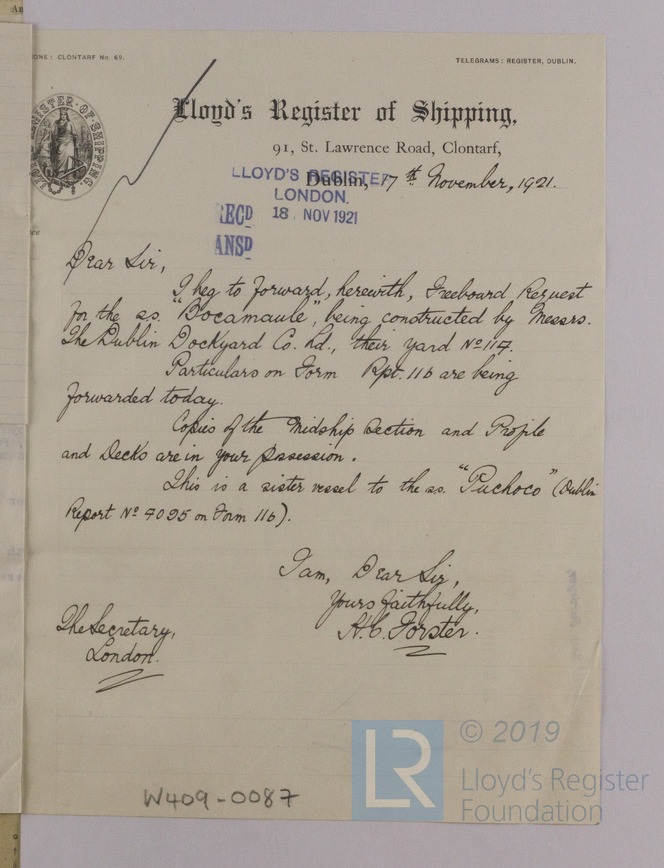 ONE: CLONTARF No. 69.
TELEGRAMS: REGISTER, DUBLIN.
Lloyd's Register of Shipping,
91, St. Lawrence Road, Clontarf,
Dublin, 17th November, 1921.
LLOYD'S REGISTER
LONDON.
RECD 18 NOV 1921
ANSD
Dear Sir,
I beg to forward, herewith, Freeboard Request
for the ss. "Bocamaule", being constructed by Messrs.
The Dublin Dockyard Co. Ld., their yard No 117.
Particulars on Form Rpt. 11b are being
forwarded today.
Copies of the Midship Section and Profile
and Decks are in your possession.
This is a sister vessel to the ss. "Puchoco" (Dublin
Report No 4095 on Form 11b).
I am, Dear Sir,
Yours faithfully,
H.C. Forster.
The Secretary,
London.
W409-0087
LR
© 2019
Lloyd's Register
Foundation